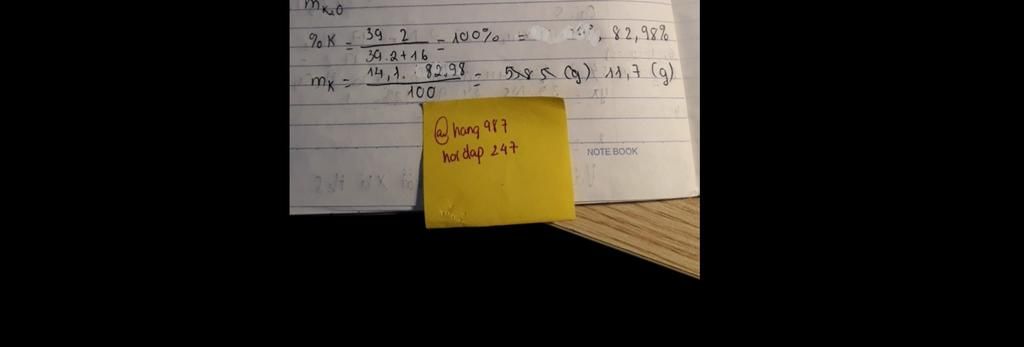 mK2O
%K = 39.2 / 39.2+16 - 100% = , 82,98%
mK = 14,1. 82,98 / 100 = (g) 11,7 (g)
@hang987
hoidap 247
NOTE BOOK